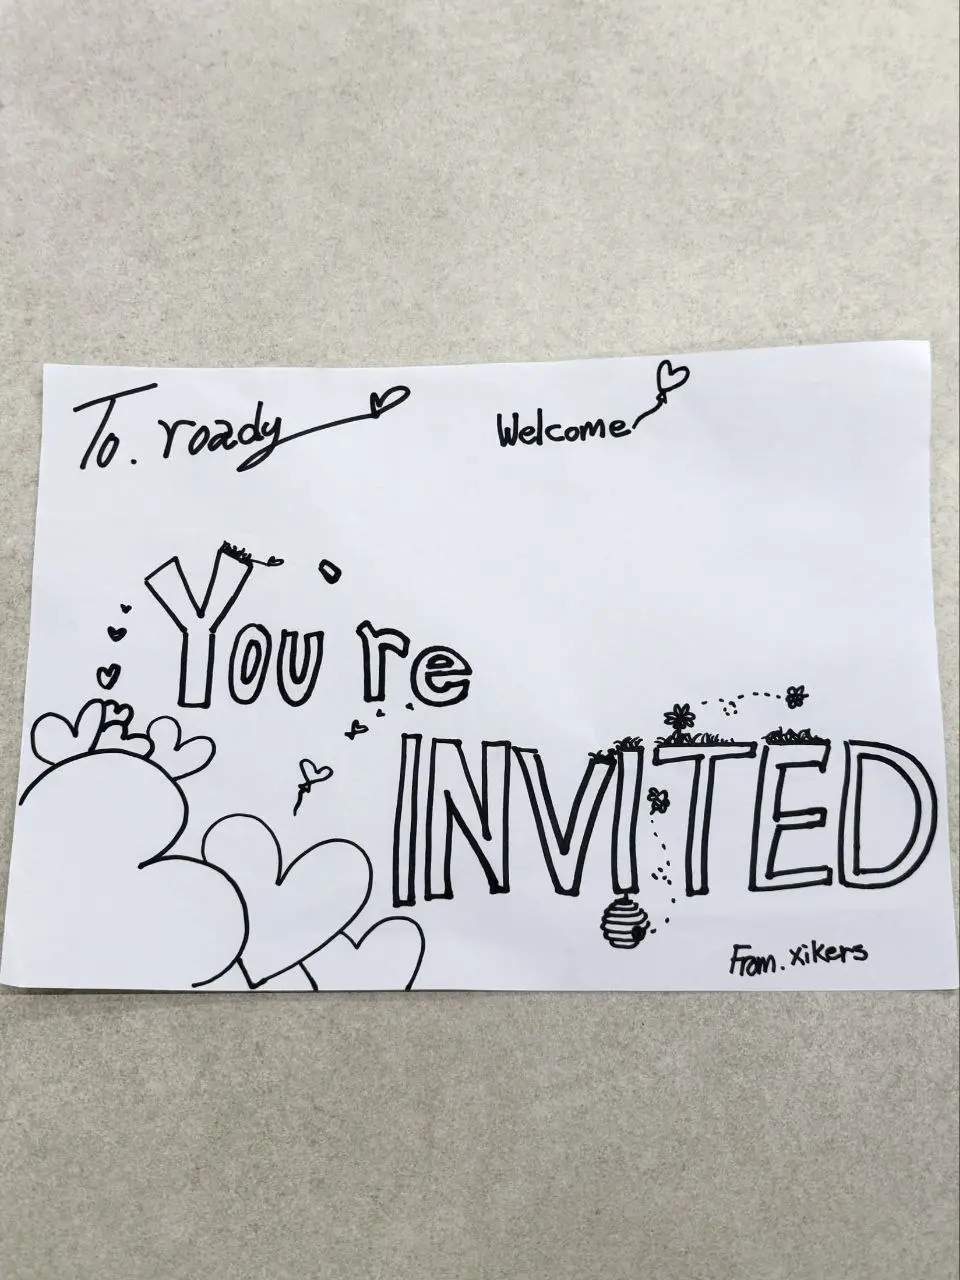 To. roady
Welcome
You're
INVITED
From. xikers